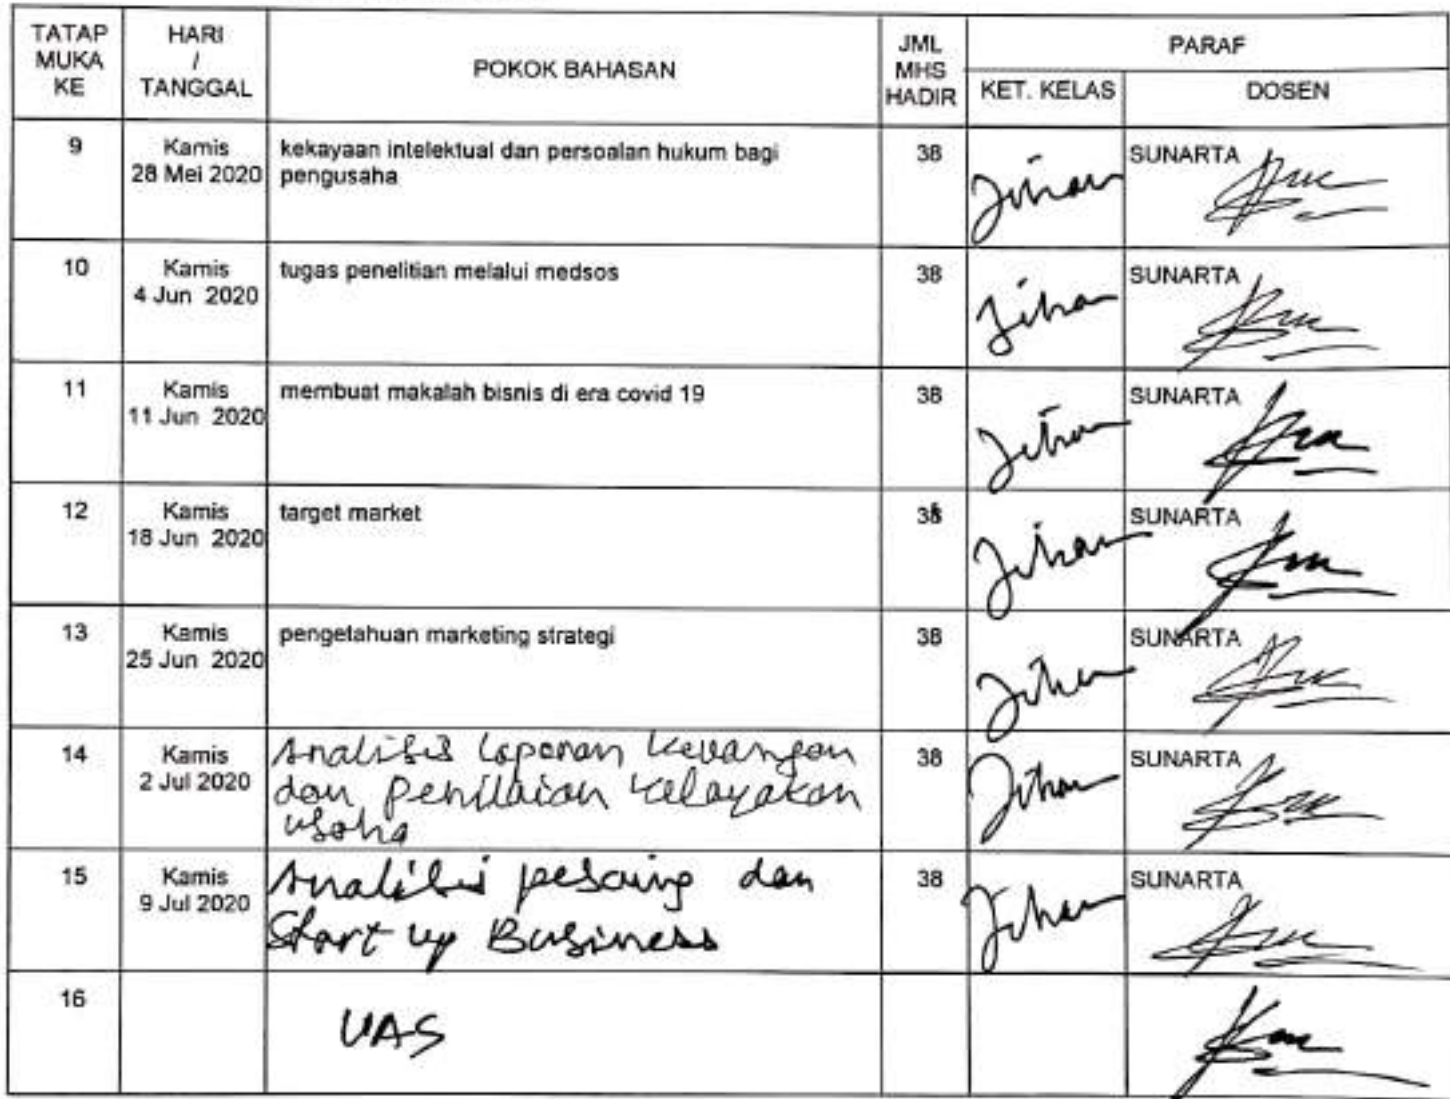 TATAP MUKA KE
HARI / TANGGAL
POKOK BAHASAN
JML MHS HADIR
PARAF
KET. KELAS
DOSEN
9
Kamis
28 Mei 2020
kekayaan intelektual dan persoalan hukum bagi
pengusaha
38
Jihan
SUNARTA
10
Kamis
4 Jun 2020
tugas penelitian melalui medsos
38
Jihan
SUNARTA
11
Kamis
11 Jun 2020
membuat makalah bisnis di era covid 19
38
Jihan
SUNARTA
12
Kamis
18 Jun 2020
target market
38
Jihan
SUNARTA
13
Kamis
25 Jun 2020
pengetahuan marketing strategi
38
Jihan
SUNARTA
14
Kamis
2 Jul 2020
Analisis laporan keuangan
dan penilaian kelayakan
usaha
38
Jihan
SUNARTA
15
Kamis
9 Jul 2020
Analisis pesaing dan
Start up Business
38
Jihan
SUNARTA
16
UAS